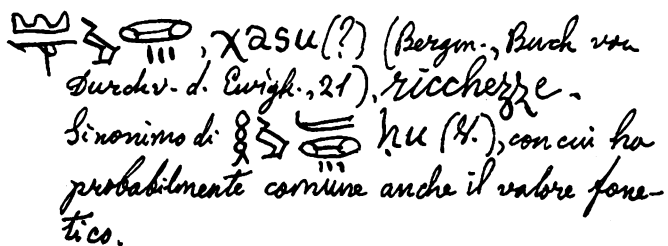 , χasu (?) (Bergm., Buch von
Durchw. d. Ewigk., 21), ricchezze.
Sinonimo di ḥu (V.), con cui ha
probabilmente comune anche il valore fone-
tico.